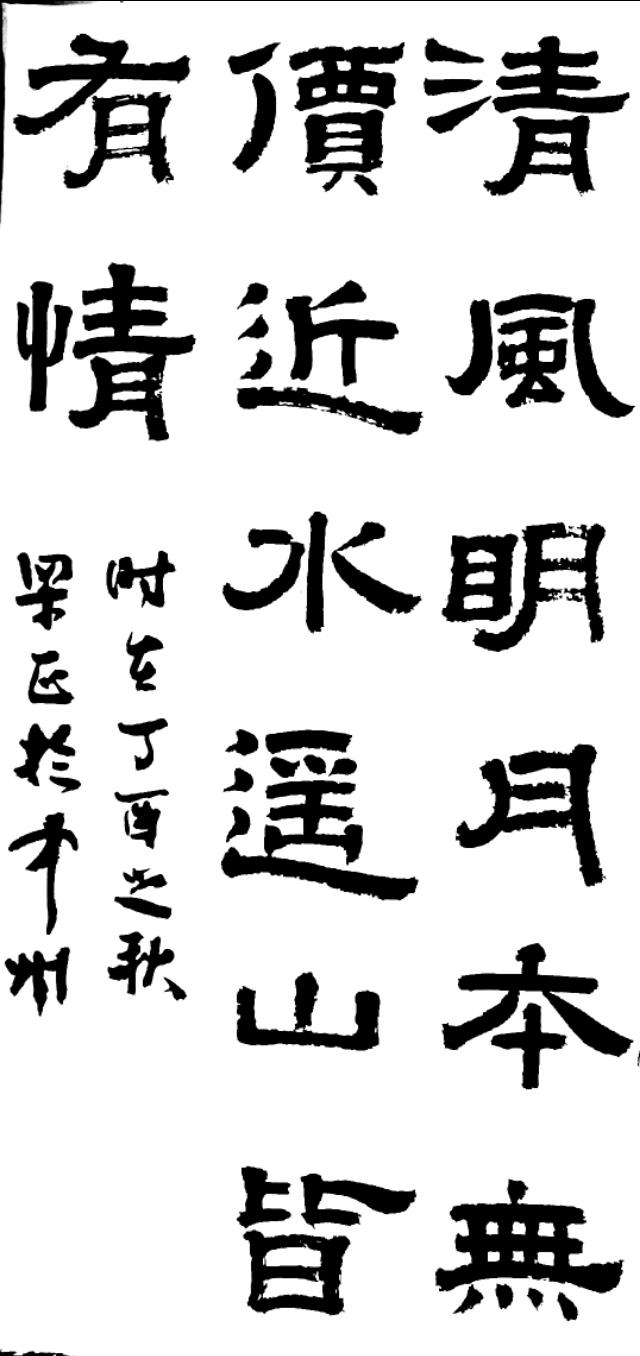 清風明月本無
價近水遥山皆
有情
时在丁酉之秋
梁正於中州